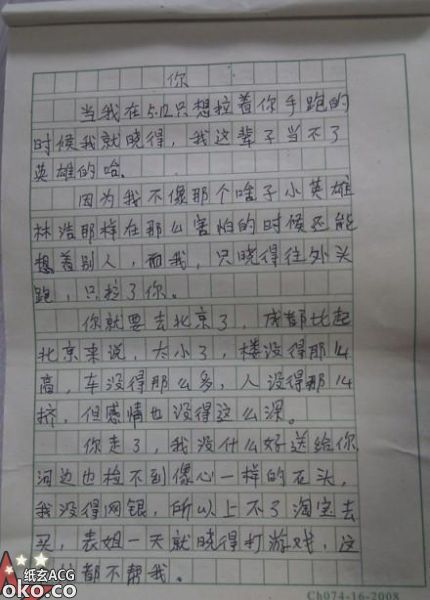 你
当我在5.12只想拉着你手跑的
时候我就晓得，我这辈子当不了
英雄的哈。
因为我不像那个啥子小英雄
林浩那样在那么害怕的时候还能
想着别人，而我，只晓得往外头
跑，只拉了你。
你就要去北京了，成都比起
北京来说，太小了，楼没得那么
高，车没得那么多，人没得那么
挤，但感情也没得这么深。
你走了，我没什么好送给你
河边也捡不到像心一样的石头，
我没得网银，所以上不了淘宝去
买，表姐一天就晓得打游戏，这
都不帮我。
纸玄ACG
oko.co
Ch074-16-2008